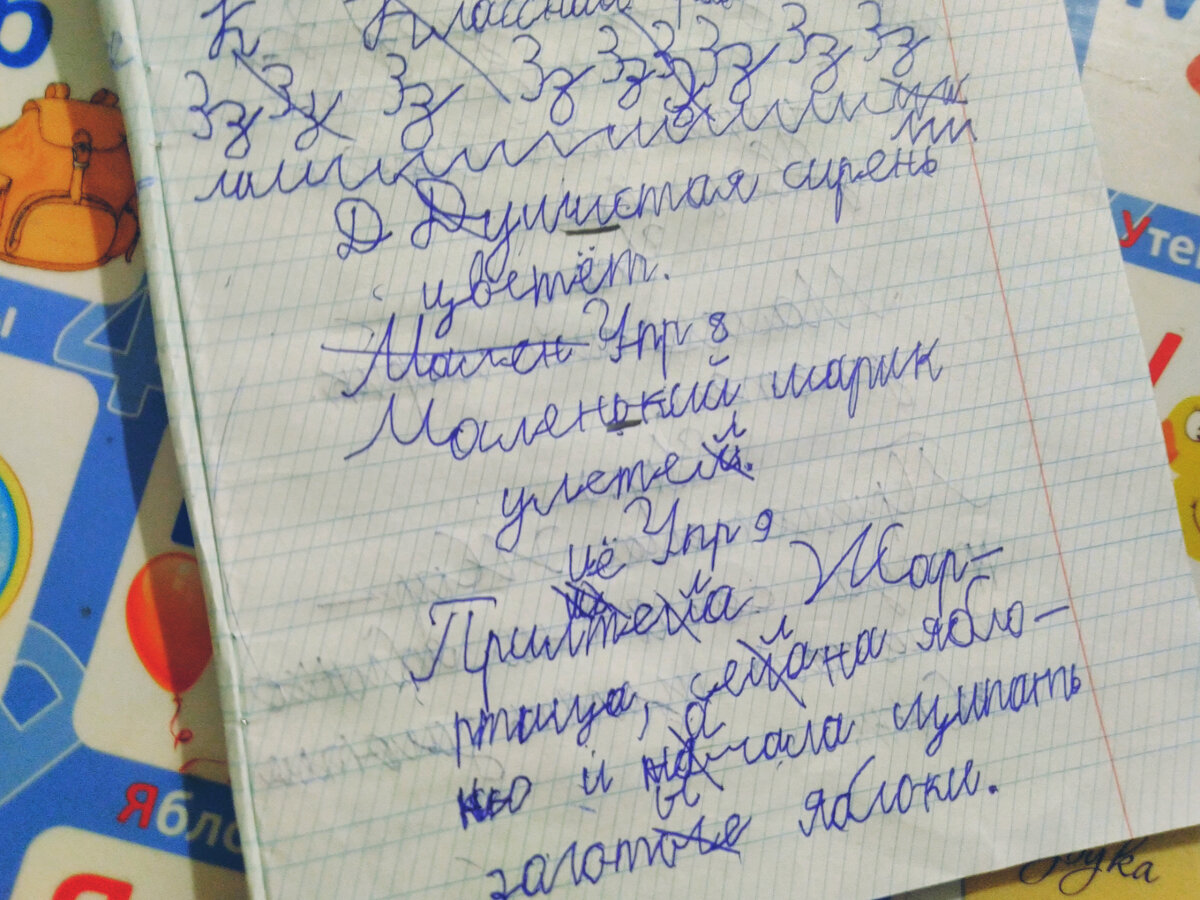 К Классная
Зз Зз Зз Зз Зз Зз Зз Зз
Д Душистая сирень
цветёт.
Мален Упр 8
Маленький шарик
улетел.
Упр 9
Прилетела Жар-
птица, села на ябло-
ню и начала щипать
золотые яблоки.
Утен
Ябло